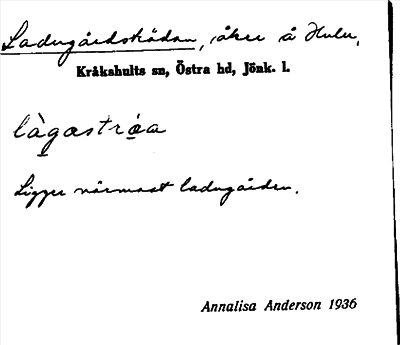 Ladugårdsträdan, åker å Hulu,
Kråkshults sn, Östra hd, Jönk. l.
làgastrǫa
Ligger närmast ladugården.
Annalisa Anderson 1936